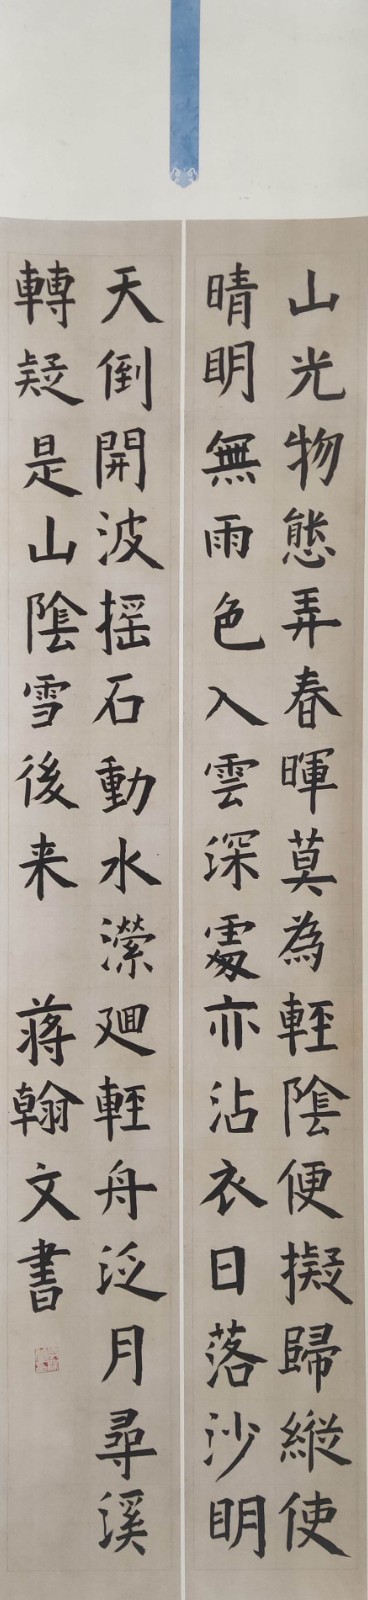 山光物態弄春暉莫為輕陰便擬歸縱使
晴明無雨色入雲深處亦沾衣日落沙明
天倒開波摇石動水瀠廻輕舟泛月尋溪
轉疑是山陰雪後来 蒋翰文書